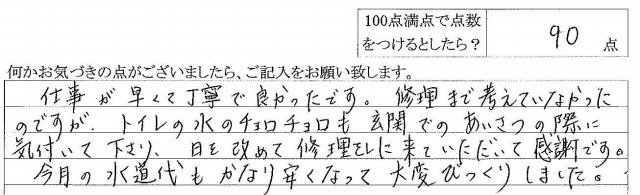 100点満点で点数
をつけるとしたら？
90 点
何かお気づきの点がございましたら、ご記入をお願い致します。
仕事が早くて丁寧で良かったです。修理まで考えていなかった
のですが、トイレの水のチョロチョロも玄関でのあいさつの際に
気付いて下さり、日を改めて修理をしに来ていただいて感謝です。
今月の水道代もかなり安くなって大変びっくりしました。